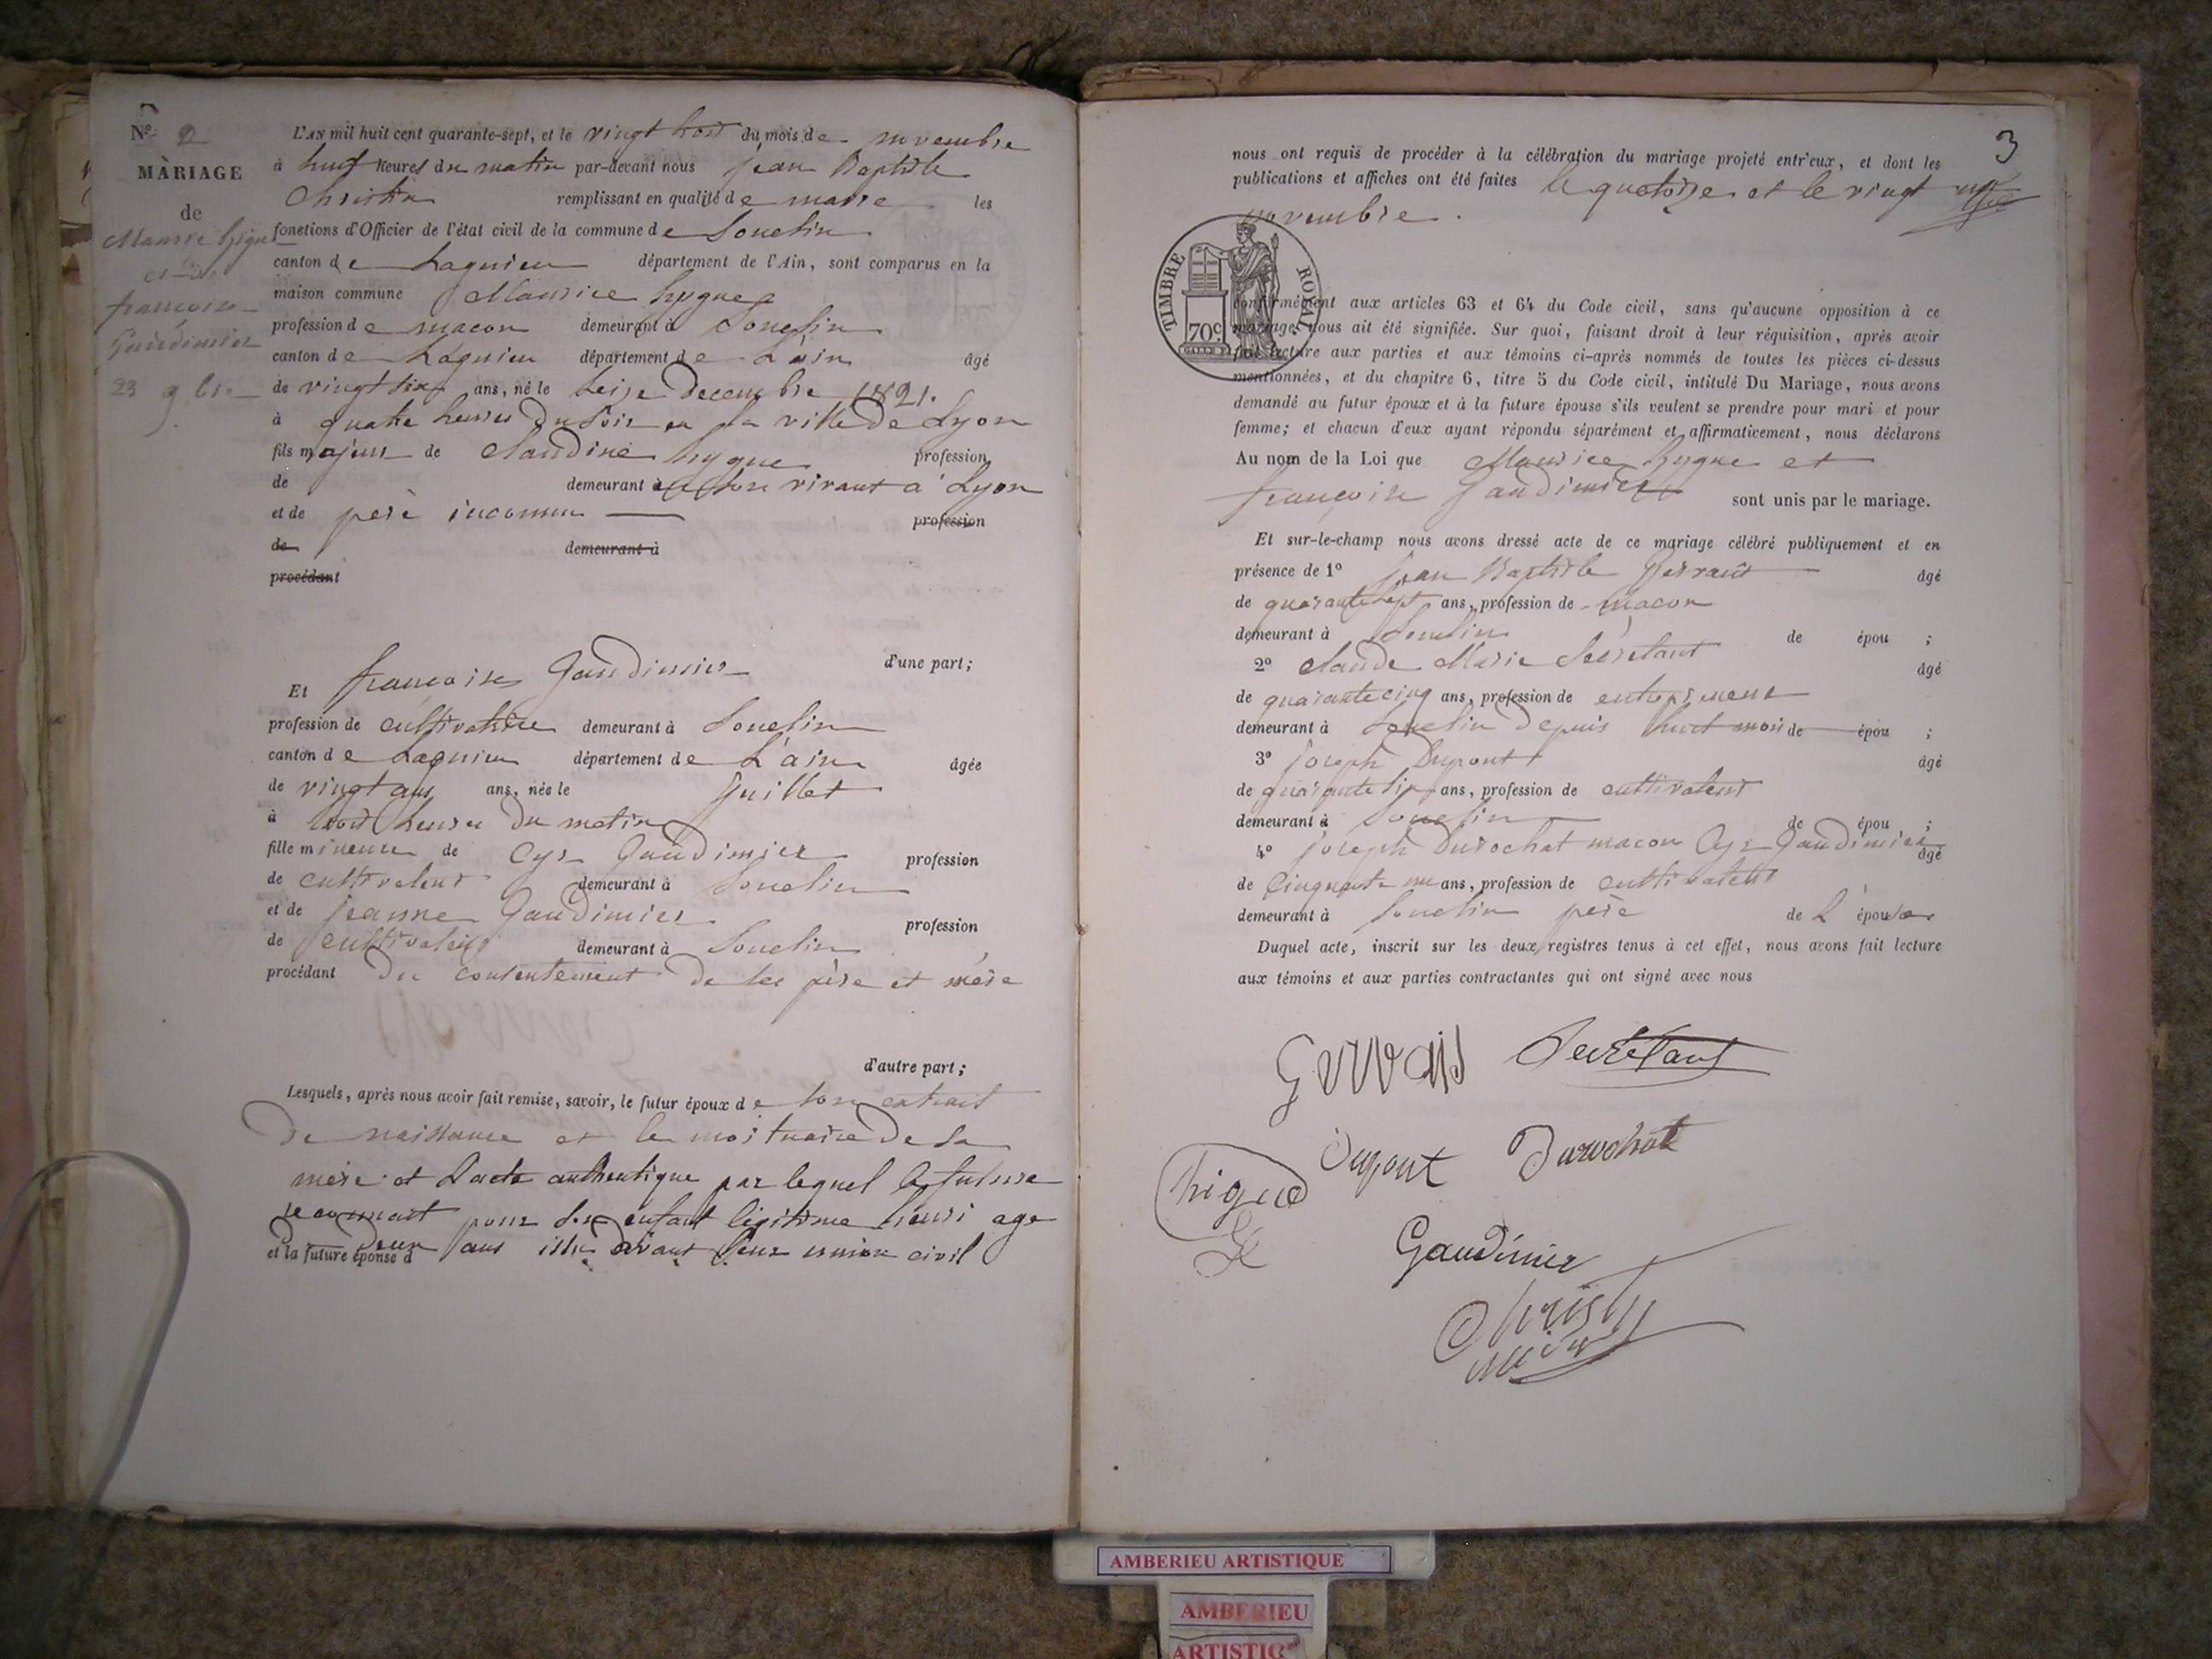 N° 2
MARIAGE
de
Maurice hygue
et de
francoise
Gaudimier
23 9bre
L'AN mil huit cent quarante-sept, et le vingt trois du mois de novembre
à huit heures du matin par-devant nous jean Baptiste
Christin remplissant en qualité de maire les
fonctions d'Officier de l'état civil de la commune de Souclin
canton de Lagnieu département de l'Ain, sont comparus en la
maison commune Maurice hygue
profession de macon demeurant à Souclin
canton de Lagnieu département de L'ain âgé
de vingt six ans, né le seize Decembre 1821.
à quatre heures du soir en la ville de Lyon
fils majeur de Claudine hygue profession
de demeurant à de son vivant a Lyon
et de père inconnu profession
de demeurant à
procédant
d'une part;
Et francoise Gaudimier
profession de cultivatrice demeurant à Souclin
canton de Lagnieu département de L'ain âgée
de vingt ans ans, née le Juillet
à trois heures du matin
fille mineure de Cyr Gaudimier profession
de cultivateur demeurant à Souclin
et de jeanne Gaudimier profession
de cultivateur demeurant à Souclin
procédant du consentement de ses père et mère
d'autre part;
Lesquels, après nous avoir fait remise, savoir, le futur époux de son extrait
de naissance et le mortuaire de sa
mère et l'acte authentique par lequel la future
reconnait pour son enfant légitime henri age
de deux ans issu avant leur union civil
et la future épouse d
3
nous ont requis de procéder à la célébration du mariage projeté entr'eux, et dont les
publications et affiches ont été faites le quatorze et le vingt un
novembre.
TIMBRE ROYAL
70c
conformément aux articles 63 et 64 du Code civil, sans qu'aucune opposition à ce
mariage nous ait été signifiée. Sur quoi, faisant droit à leur réquisition, après avoir
fait lecture aux parties et aux témoins ci-après nommés de toutes les pièces ci-dessus
mentionnées, et du chapitre 6, titre 5 du Code civil, intitulé Du Mariage, nous avons
demandé au futur époux et à la future épouse s'ils veulent se prendre pour mari et pour
femme; et chacun d'eux ayant répondu séparément et affirmativement, nous déclarons
Au nom de la Loi que Maurice hygue et
francoise Gaudimier sont unis par le mariage.
Et sur-le-champ nous avons dressé acte de ce mariage célébré publiquement et en
présence de 1° jean Baptiste âgé
de quarante sept ans, profession de macon
demeurant à Souclin de épou ;
2° Claude Marie Secretant âgé
de quarante cinq ans, profession de entrepreneur
demeurant à Souclin depuis huit mois de épou ;
3° joseph Dupont âgé
de quarante six ans, profession de cultivateur
demeurant à Souclin de épou ;
4° joseph Durochat macon Cyr Gaudimier âgé
de Cinquante un ans, profession de cultivateur
demeurant à Souclin père de L'épouse
Duquel acte, inscrit sur les deux registres tenus à cet effet, nous avons fait lecture
aux témoins et aux parties contractantes qui ont signé avec nous
Gervais Secretant
Dupont Durochat
higue
Gaudimier
Christin
AMBERIEU ARTISTIQUE
AMBERIEU
ARTISTIQ